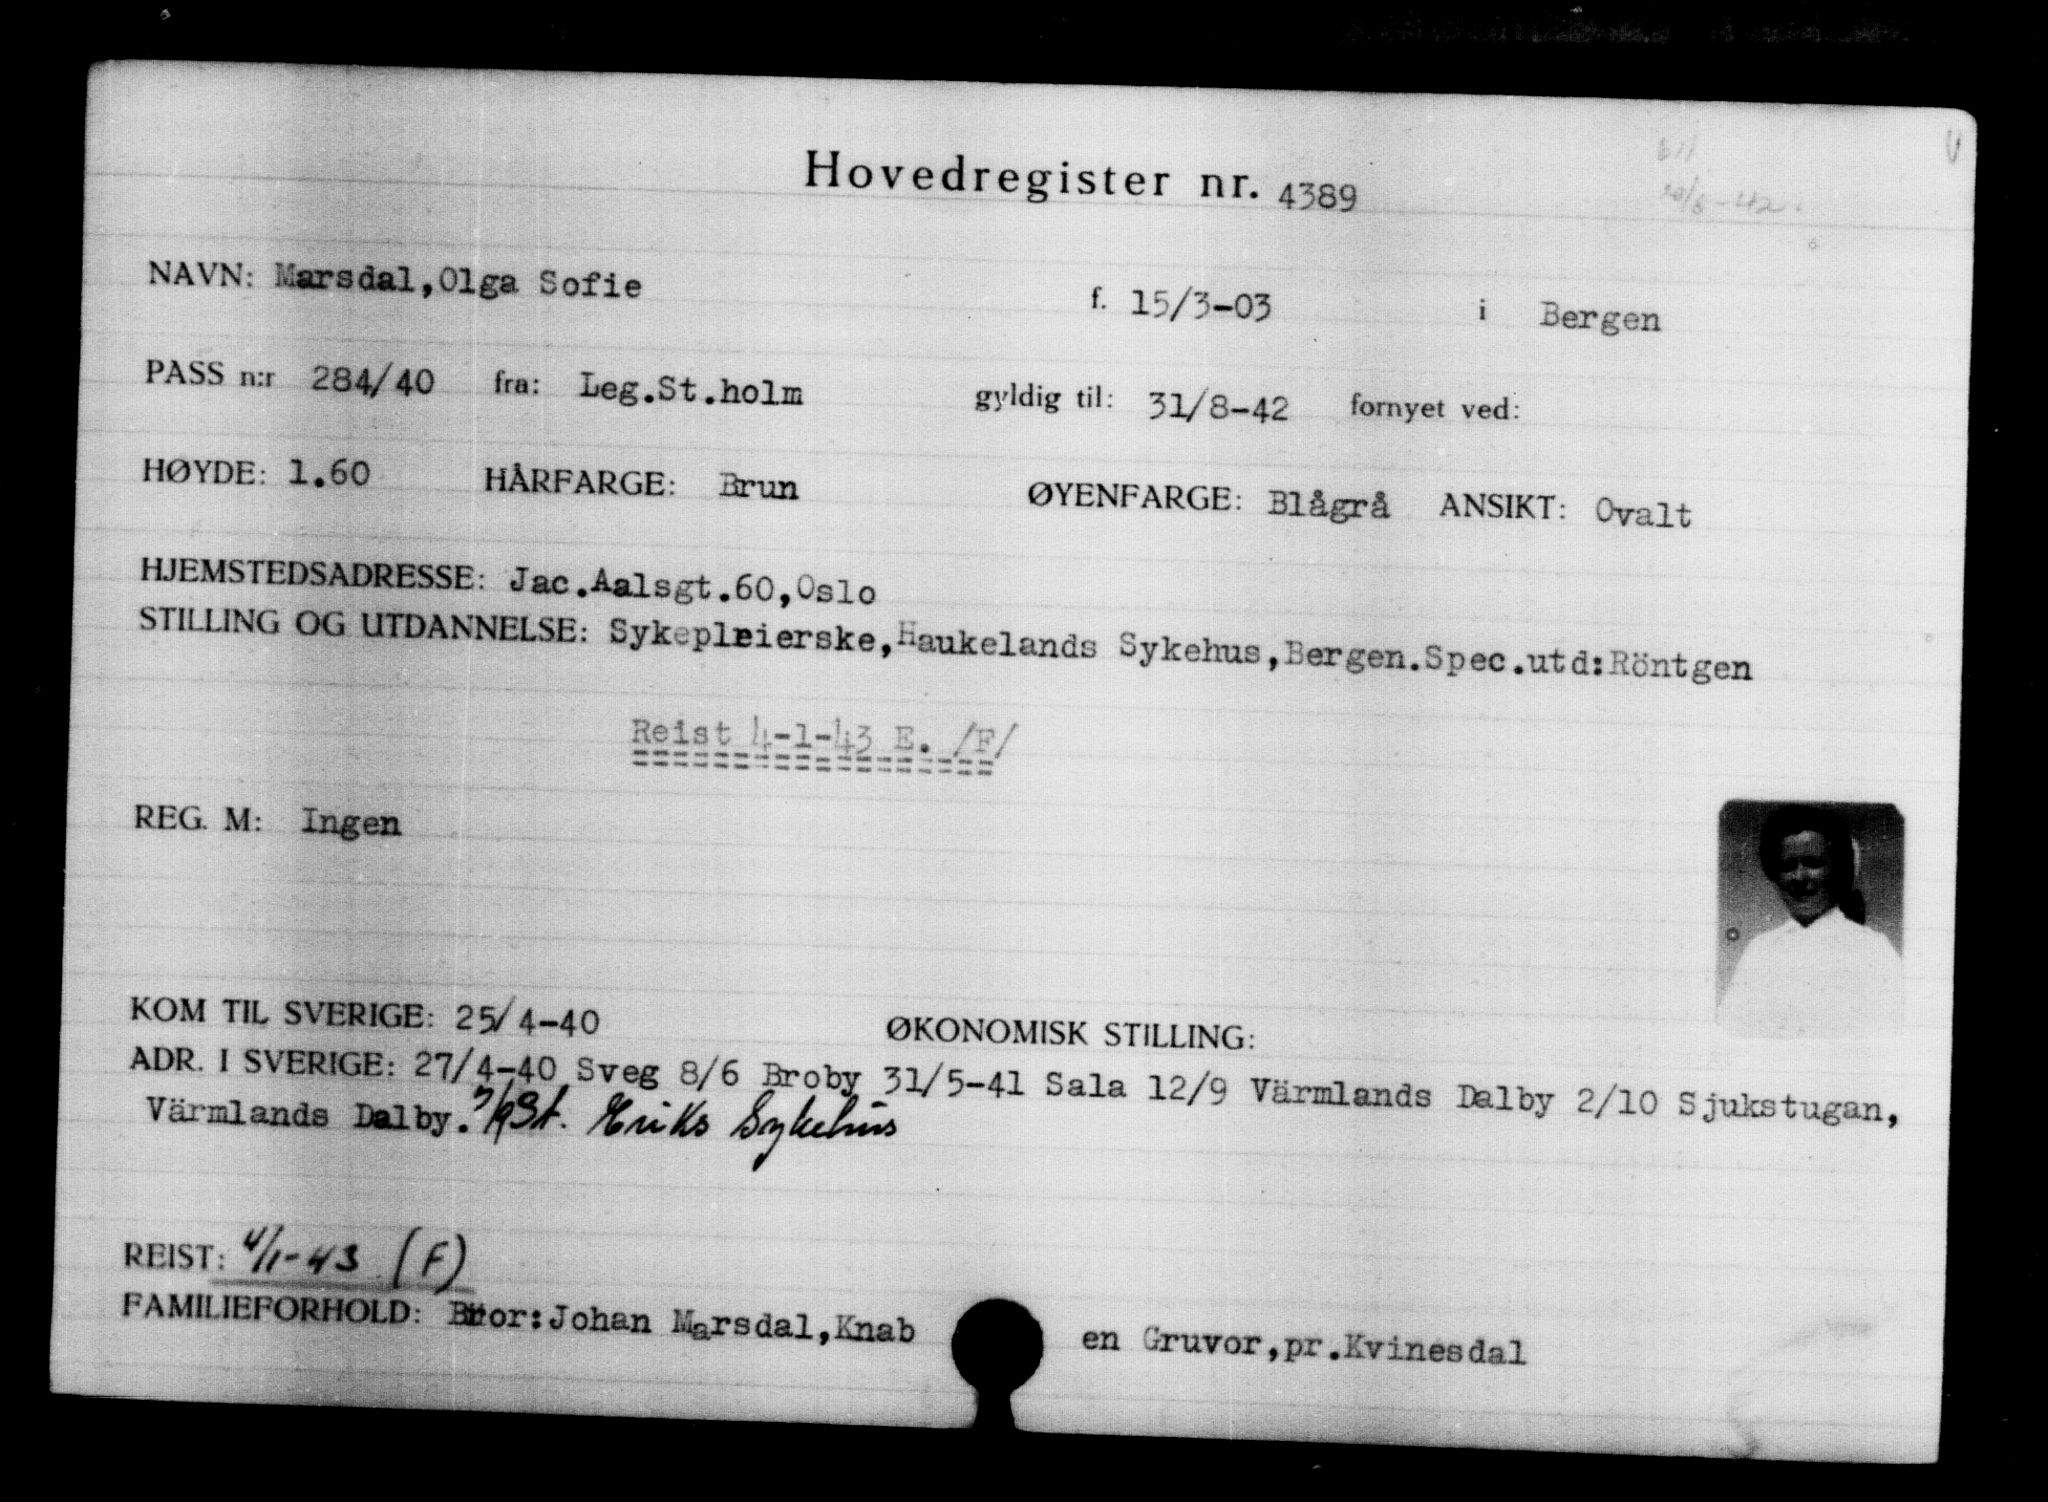 Hovedregister nr. 4389
NAVN: Marsdal,Olga Sofie f. 15/3-03 i Bergen
PASS n:r 284/40 fra: Leg.St.holm gyldig til: 31/8-42 fornyet ved:
HØYDE: 1.60 HÅRFARGE: Brun ØYENFARGE: Blågrå ANSIKT: Ovalt
HJEMSTEDSADRESSE: Jac.Aalsgt.60,Oslo
STILLING OG UTDANNELSE: Sykepleierske,Haukelands Sykehus,Bergen.Spec.utd:Röntgen
Reist 4-1-43 E. /F/
REG. M: Ingen
KOM TIL SVERIGE: 25/4-40 ØKONOMISK STILLING:
ADR. I SVERIGE: 27/4-40 Sveg 8/6 Broby 31/5-41 Sala 12/9 Värmlands Dalby 2/10 Sjukstugan,
Värmlands Dalby. 7/9 St. Eriks Sykehus
REIST: 4/1-43 (F)
FAMILIEFORHOLD: Bror:Johan Marsdal,Knab en Gruvor,pr.Kvinesdal